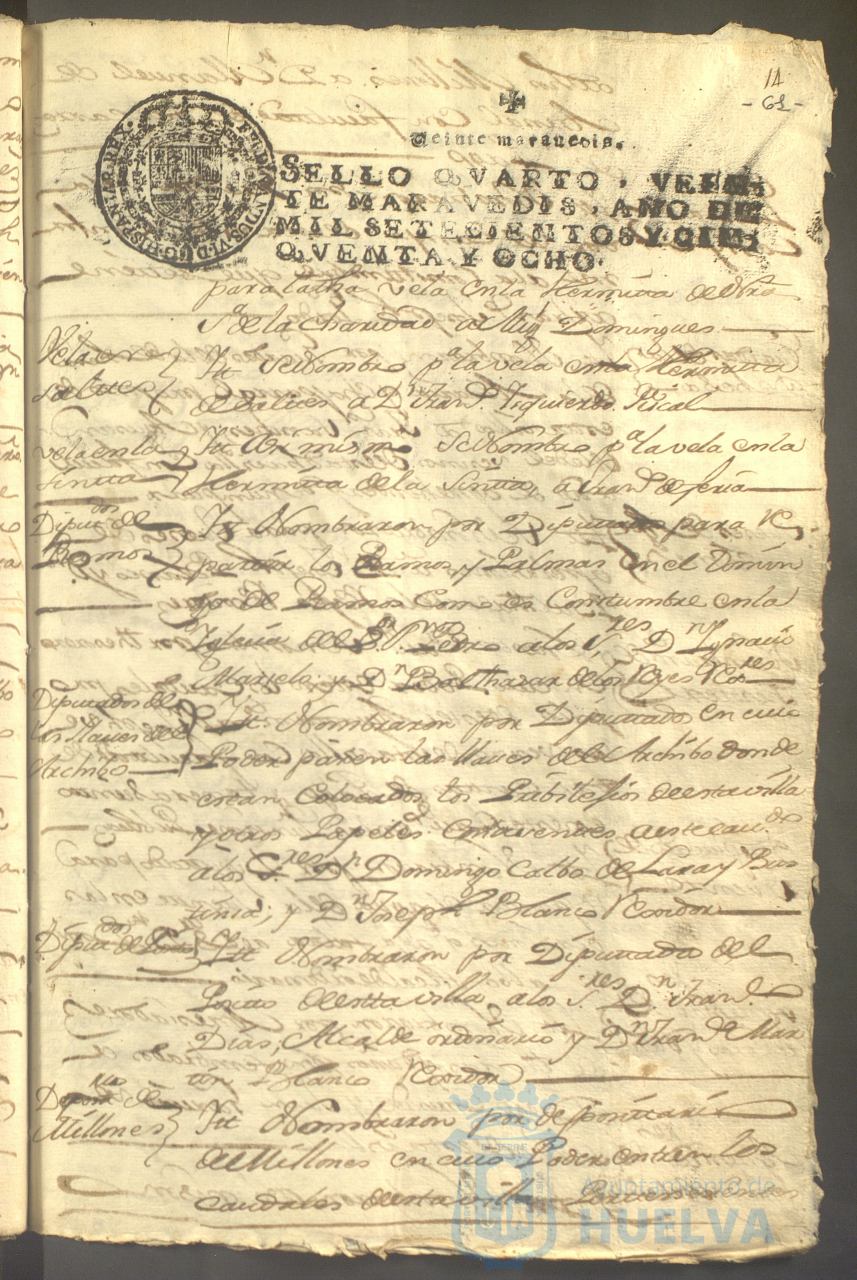 14
- 61 -
Veinte maravedis.
FERDINANDUS VI D.G. HISPANIAR. REX.
SELLO QVARTO, VEIN-
TE MARAVEDIS, AÑO DE
MIL SETECIENTOS Y CIN-
QVENTA Y OCHO.
para la dha vela en la Hermita de Ntra
Sra de la Charidad a Mig.l Domingues
Vela en
Saluces
Itt. se Nombro pa la vela en la Hermita
de Saluces a Dn Fran.co Yzquierdo Fiscal
vela en la
Sinta
Itt. Asi mismo se Nombro pa la vela en la
Hermita de la Sinta, a Fran.co de feria
Diputdos de
Ramos
Itt. Nombraron por Diputados para Re
partir los Ramos, y Palmas en el Domin
go de Ramos Como es Constumbre en la
Iglecia de S.r S.n Pedro a los S.res D.n Ygnacio
y D.n Balthazar de los Reyes Rres
Diputados de
las llaves del
Archibo
Itt. Nombraron por Diputados en cuio
Poder paren las llaves del Archibo donde
estan Colocados los Pribilejios de esta villa
y otros Papeles a este cau.do
a los S.res D.n Domingo Calbo de Lara y Bus
; y D.n Joseph Blanco Rexidor
Diputdos de
Itt. Nombraron por Diputados del
Posito de esta villa a los S.res D.n Fran.co
Dias, Alcalde ordinario y D.n Fran.co Mar
tin Blanco Rexidor
Depositrio de
Millones
Itt. Nombraron por depositario
de Millones en cuio Poder entren los
caudales de esta villa
Ayuntamiento de
HUELVA